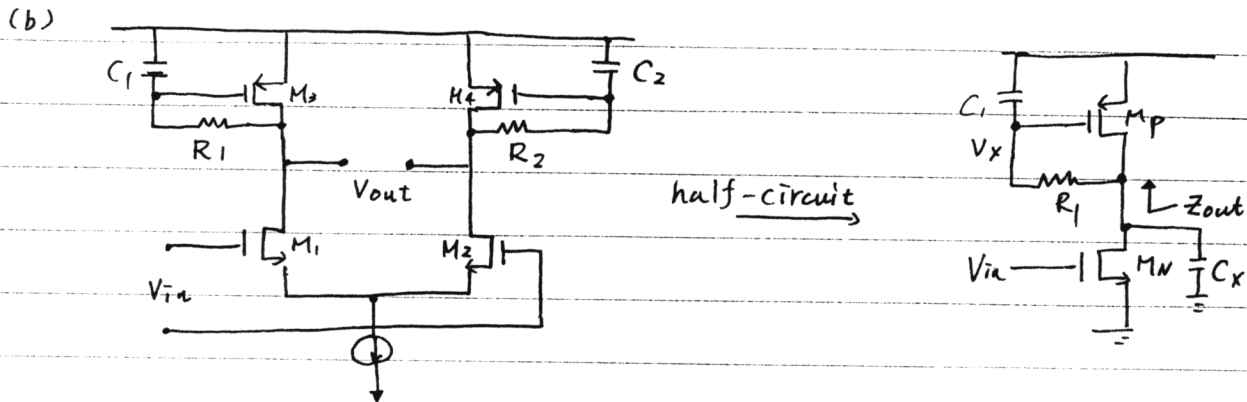 (b)
C1
M3
M4
C2
R1
R2
Vout
M1
M2
Vin
half-circuit
C1
MP
Vx
R1
Zout
Vin
MN
Cx